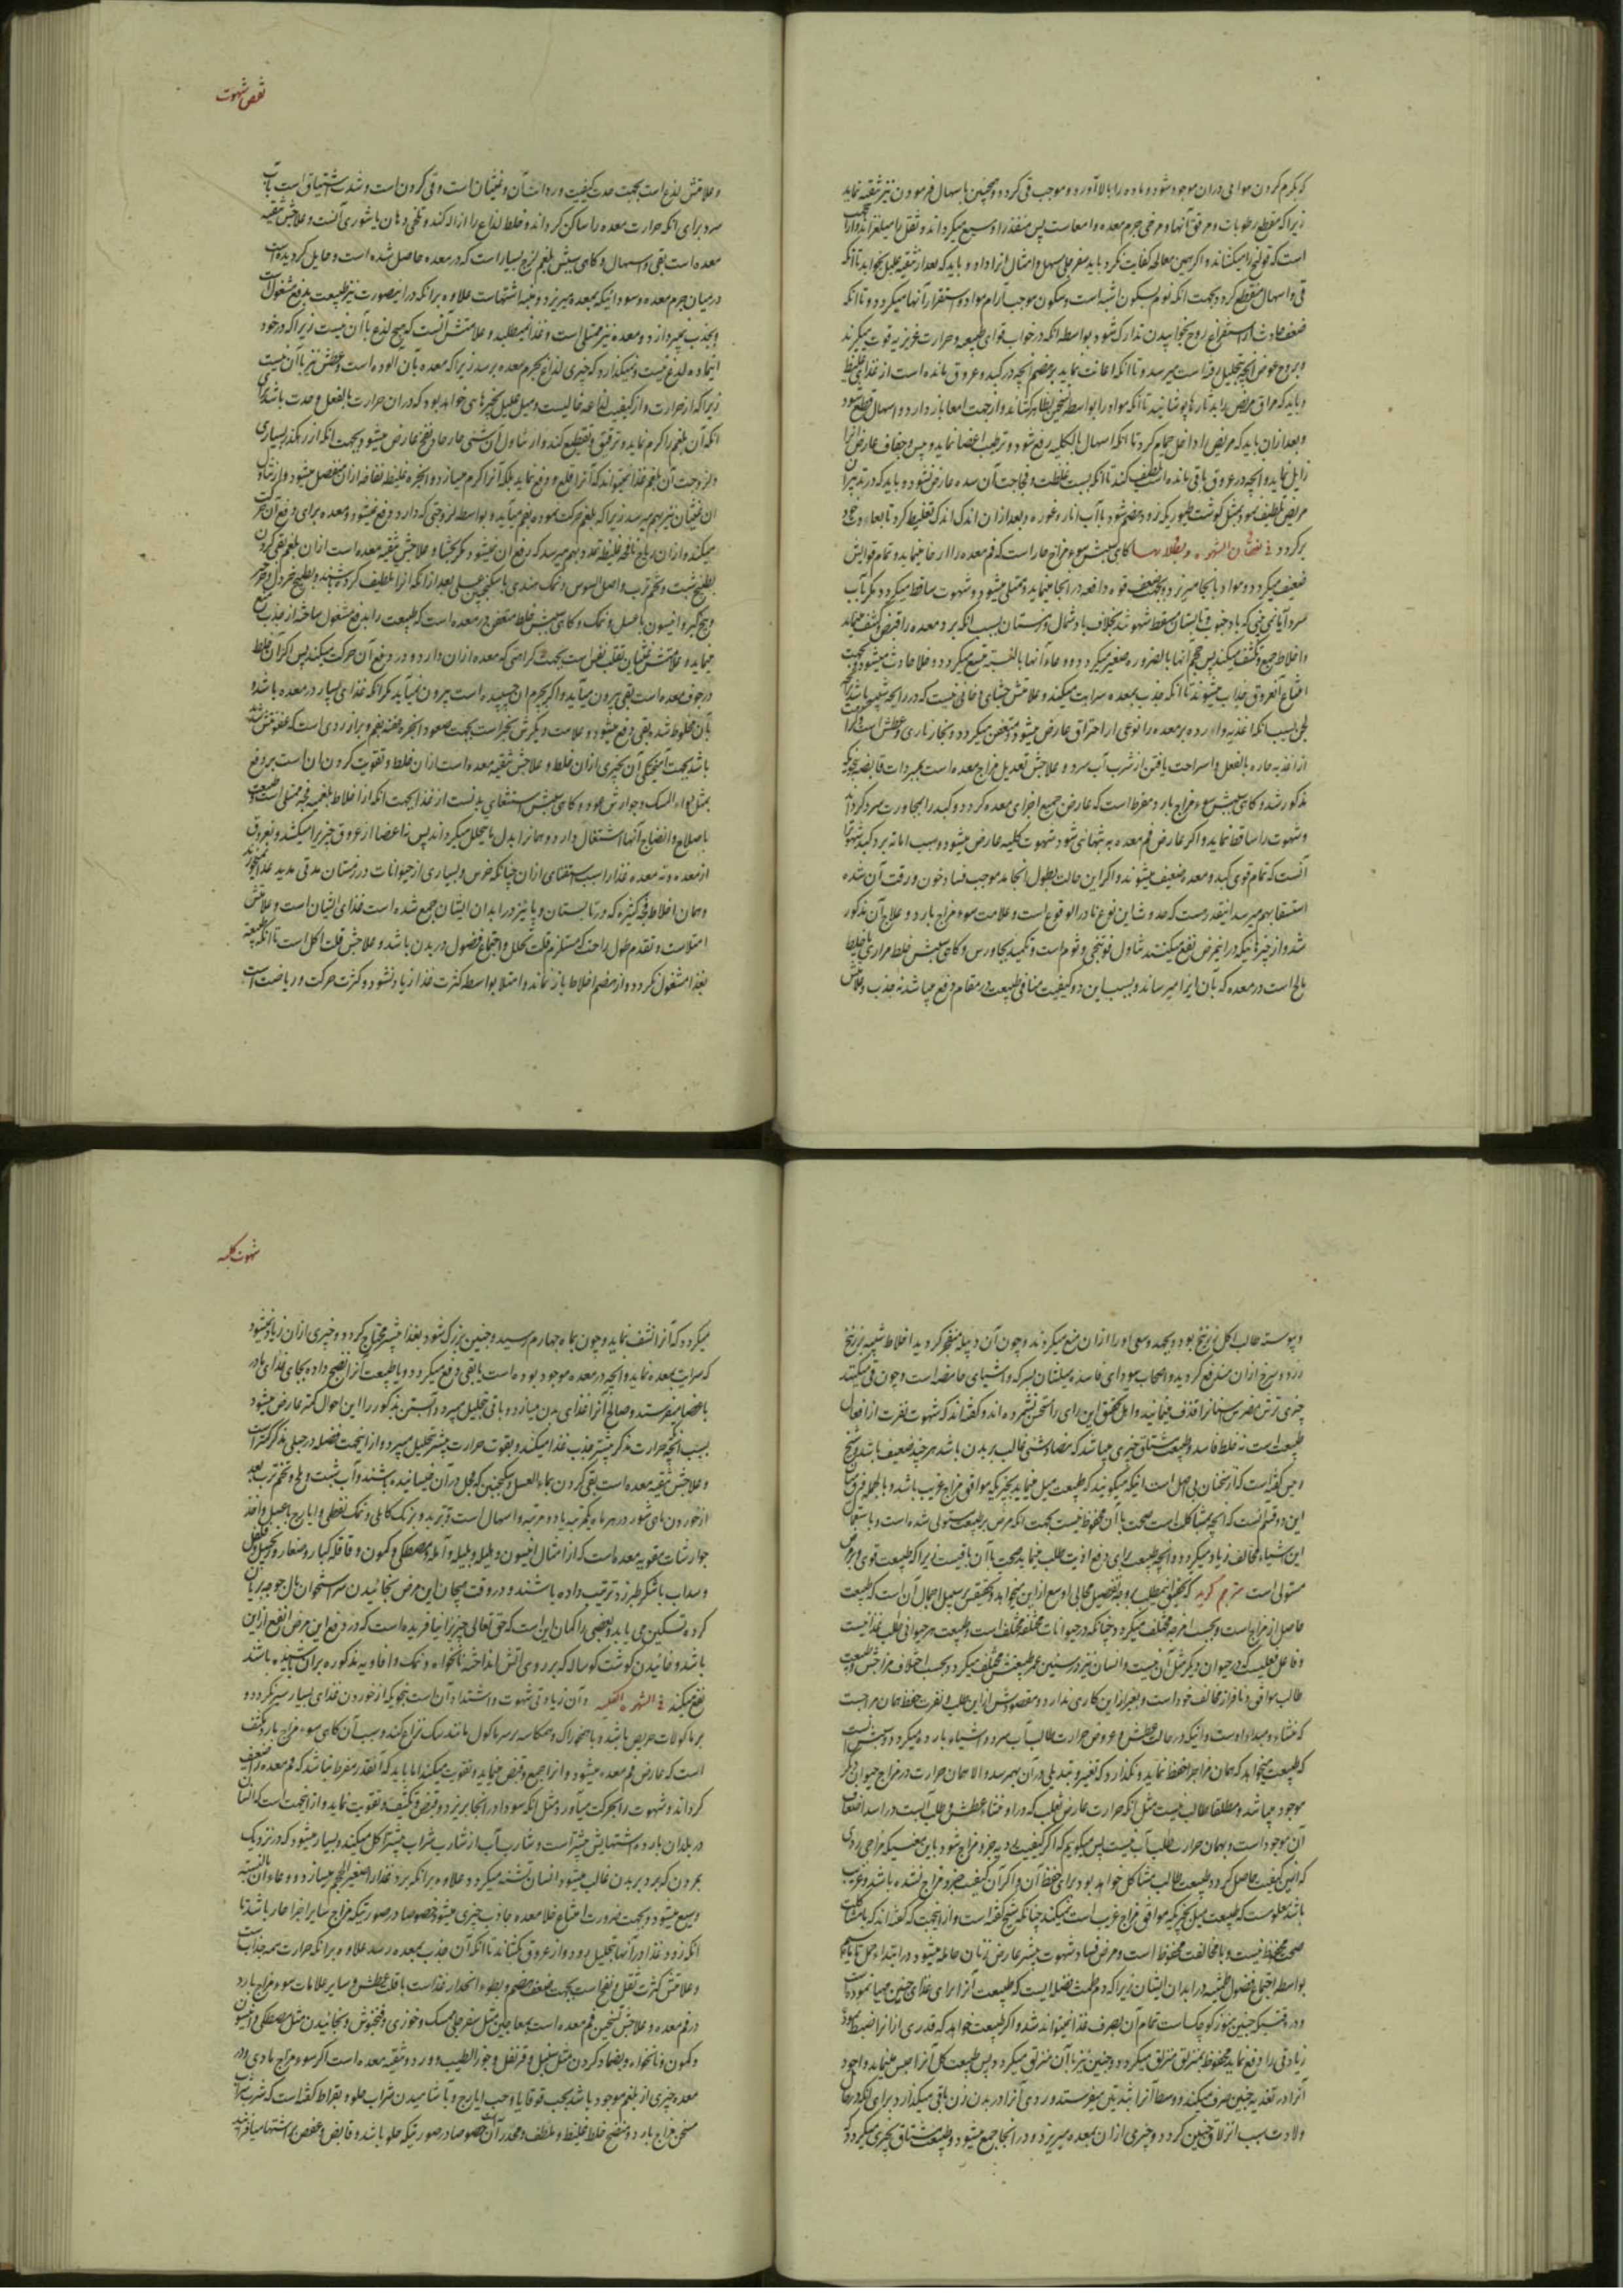 که بکرم کردن هوا می در ان موجود شود و ماده را ببالا آورد و موجب قی کردد و همچنین باسهال فرمودن نیز تنقیه نماید
زیرا که مقطع رطوبات و مرقق آنها و مرخی جرم معده و امعاست پس منفذ را وسیع میکرداند و ثقل را میلغزاند
است که قولنج را میکشاند و اکر بهمین معالجه کفایت نکرد باید سفرجلی مسهل و امثال انرا داد و باید که بعد از تنقیه علیل بخوابد تا انکه
قی و اسهال منقطع کردد بجهت انکه نوم بسکون اشبه است و سکون موجب آرام مواد و استقرار آنها میکردد و تا انکه
ضعف حادث از استفراغ روح بخوابیدن تدارک شود بواسطه انکه در خواب قوای طبیعیه و حرارت غریزیه قوت میکیرند
و بروح عوض انچه بتحلیل رفته است میرسد و تا انکه اعانت نماید بر هضم انچه در کبد و عروق مانده است از غذای غلیظ
و باید که مراق مریض را بدثارها بپوشانید تا انکه مواد را بواسطه تسخین بظاهر کشاند و از جهت امعا باز دارد و اسهال قطع شود
و بعد ازان باید که مریض را داخل حمام کرد تا انکه اسهال بالکلیه رفع شود و ترطیب اعضا نماید و یبس و جفاف عارض انرا
زایل نماید و انچه در عروق باقی مانده است تلطیف کند تا انکه بسبب غلظت و فجاجت آن سده عارض نشود و باید که در تدبیر ان
مریض تلطیف نمود بمثل کوشت طیوری که زود هضم شود با آب انار و غوره و بعد از ان اندک اندک تغلیظ کرد تا بعادت خود
برکردد فی نقصان الشهوه و بطلانها کاهی سببش سوء مزاج حار است که فم معده را ارخا مینماید و تمام قوایش
ضعیف میکردد و مواد بانجا میریزد و بجهت ضعف قوه دافعه در انجا میماند و ممتلی میشود و شهوت ساقط میکردد مکر بآب
سرد آیا نمی بینی که باد جنوب و تابستان مسقط شهوتند بخلاف باد شمال و زمستان بسبب انکه برد معده را قبض و کثیف مینماید
و اخلاط جمع و تکثیف میکند پس حجم انها بالضروره صغیر میکردد و وعاء آنها بالنسبة متسع میکردد و خلا حادث میشود و بجهت
امتناع آن عروق جذاب میشوند تا انکه جذب بمعده سرایت میکند و علامتش جشای دخانی نیست که در رایحه شبیه باشد
بسبب انکه اغذیه وارده بر معده را نوعی از احتراق عارض میشود و متعفن میکردد و بخار ناری و عطش است
از اغذیه حاره بالفعل و استراحت یافتن از شرب آب سرد و علاجش تعدیل مزاج معده است بمبردات قابضه
مذکور شد و کاهی سببش سوء مزاج بارد مفرط است که عارض جمیع اجزای معده کردد و کبد را بمجاورت سرد کرداند
و شهوت را ساقط نماید و اکر عارض فم معده به تنهائی شود شهوت کلبیه عارض میشود و سبب اماته برد کبد شهوترا
آنست که تمام قوی کبد و معده ضعیف میشوند و اکر این حالت بطول انجامد موجب فساد خون و رقت آن شده
استسقا بهم میرسد اینقدر هست که حدوث این نوع نادر الوقوع است و علامت سوء مزاج بارد و علاج آن مذکور
شد و از چیزهائیکه در این مرض نفع میکند تناول فوتنجی و ثوم است و تکمید بجاورس و کاهی سببش خلط مراری یا خلط
مالح است در معده که بآن ایذا میرساند و بسبب این دو کیفیت منافی طبیعت در مقام دفع میباشد نه جذب و علامتش
نقص شهوت
و علامتش لذع است بجهت حدت کیفیت و رداءت آن و غثیان است و قی کردن است و شدت اشتیاق است بآب
سرد برای انکه حرارت معده را ساکن کرداند و خلط لذاع را ازاله کند و تلخی دهان یا شوری آنست و علاجش تنقیه
معده است بقی و اسهال و کاهی سببش بلغم لزج بسیار است که در معده حاصل شده است و حایل کردیده است
درمیان جرم معده و سودائیکه بمعده میریزد و منبه اشتهاست علاوه بر انکه در اینصورت نیز طبیعت بدفع مشغول است
و بجذب نمیپردازد و معده نیز ممتلی است و غذا نمیطلبد و علامتش آنست که هیچ لذع با آن نیست زیرا که در خود
این ماده لدغ نیست و نمیکذارد که چیزی لذاع بجرم معده برسد زیرا که معده بآن الوده است و عطش نیز با آن نیست
زیرا که از حرارت و از کیفیت لذاعه خالیست و میل علیل بچیزهائی خواهد بود که در ان حرارت بالفعل و حدت باشد برای
انکه آن بلغم را کرم نماید و ترقیق و تقطیع کند و از تناول اشیای حار حاد نفخ عارض میشود بجهت انکه از رهکذر بسیاری
و لزوجت آن بلغم غذا نمیتواند که آنرا قلع و دفع نماید بلکه آنرا کرم میسازد و ابخره غلیظه نفاخه ازان منفصل میشود و از تناول
ان غثیان نیز بهم میرسد زیرا که بلغم بحرکت نموده بفم میآید و بواسطه لزوجتی که دارد دفع نمیشود و معده برای دفع آن حرکت
میکند و از ان ریاح نافخه غلیظه تمدد بهم میرسد که رفع ان نمیشود مکر بجشاء و علاجش تنقیه معده است از ان بلغم بقی کردن
بطبیخ شبت و تخم ترب و اصل السوس و نمک هندی با سکنجبین عسلی بعد از انکه انرا تلطیف کرده باشند و بطبیخ خردل و حرف
و بیخ کبر و انیسون با عسل و نمک و کاهی سببش خلط متعفن در معده است که طبیعت را بدفع مشغول ساخته از جذب منع
مینماید و علامتش غثیان و تقلب نفس است بجهت کراهتی که معده ازان دارد و در دفع آن حرکت میکند پس اکر آن خلط
در جوف معده است بقی بیرون میآید و اکر بجرم ان چسبیده است بیرون نمیآید مکر انکه غذای بسیار در معده باشد و
بآن مخلوط شده بقی دفع میشود و علامت دیکرش بخر است بجهت صعود ابخره عفنه بفم و براز ردی است که عفونتش شدید
باشد بجهت آمیختکی آن بچیزی از ان خلط و علاجش تنقیه معده است از ان خلط و تقویت کردن ان است بر دفع
بمثل دواء المسک و جوارش عود و کاهی سببش استغنای بدنست از غذا بجهت انکه از اخلاط بلغمیه فجه ممتلی است و طبیعت
باصلاح و انضاج آنها اشتغال دارد و همانرا بدل ما یتحلل میکرداند پس نه اعضا از عروق چیزیرا میکشند و نه عروق
از معده و نه معده غذا را سبب استغنای از ان چنانکه خرس و بسیاری از حیوانات در زمستان مدتی مدید غذا نمیخورند
و همان اخلاط فجه کثیره که در تابستان و پائیز در ابدان ایشان جمع شده است غذای ایشان است و علامتش
امتلاست و تقدم طول راحت که مستلزم قلت تحلل و اجتماع فضول در بدن باشد و علاجش قلت اکل است تا انکه طبیعت
بغذا مشغول نکردد و از هضم اخلاط باز نماند و امتلا بواسطه کثرت غذا زیاد نشود و کثرت حرکت و ریاضت است
و پیوسته طالب اکل زرنیخ بود و بجهد و سعی او را از ان منع میکردند و چون آن دبیله منفجر کردید اخلاط شبیه بزرنیخ
زرد و سرخ ازان مندفع کردید و اصحاب سودای فاسد میلشان بسرکه و اشیای حامضه است و چون قی میکنند
چیزی ترش مضرس اسنانرا قذف مینمایند و اهل تحقیق این رای را مستحسن نشمرده اند و کفته اند که شهوت نفرت از افعال
طبیعت است نه خلط فاسد و طبیعت مشتاق چیزی میباشد که مضاد شئ غالب بر بدن باشد هر چند ضعیف باشد و شیخ
رئیس کفته است که از سخنان بی اصل است اینکه میکویند که طبیعت میل مینماید بچیزیکه موافق مزاج غریب باشد و بالجمله فرق میان
این دو قسم انست که انچه بمشاکلت است صحت با آن محفوظ نیست بجهت انکه مرض بر طبیعت مستولی شده است و باستعمال
این اشیاء مخالف زیاد میکردد و انچه طبیعت برای دفع اذیت طلب مینماید صحت با آن باقیست زیرا که طبیعت قوی و بر مرض
مستولی است مترجم کوید که تحقیق این مطلب بر وجه تفصیل مجالی اوسع از این میخواهد و تحقیقش بر سبیل اجمال آن است که طبیعت
حاصل از مزاج است و بحسب امزجه مختلف میکردد و چنانکه در حیوانات مختلفه مختلف است و طبیعت هر حیوانی طالب غذائیست
و فاعل فعلیست که در حیوان دیکر مثل آن نیست و انسان نیز در سنین عمر طبیعتش مختلف میکردد بحسب اختلاف مزاجش و طبیعت
طالب موافق و نافر از مخالف خود است و بغیر از این کاری ندارد و مقصودش از این طلب و نفرت حفظ همان مزاجست
که منشاء و مبداء اوست و اینکه در حالت عطش و عروض حرارت طالب آب سرد و اشیاء بارده میکردد سببش انست
که طبیعت میخواهد که همان مزاجرا حفظ نماید و نکذارد که تغییر و تبدیلی در آن بهم رسد و الا همان حرارت در مزاج حیوان دیکر
موجود میباشد و مطلقا طالب نیست مثل انکه حرارت عارض ثعلب که در او منشاء عطش و طلب آبست در اسد اضعاف
آن موجود است و بهمان حرارت طالب آب نیست پس میکویم که اکر کیفیت ردیه جزو مزاج شود باین معنی که مزاجی ردی
که انرا این کیفیت حاصل کردد و طبیعت طالب مشاکل خواهد بود برای حفظ آن و اکر آن کیفیت جزو مزاج نشده باشد و غریب
باشد معلومست که طبیعت میل بچیزیکه موافق مزاج غریب است نمیکند چنانکه شیخ کفته است و از اینجهت که کفته اند که با مشاکلت
صحت محفوظ نیست و با مخالفت محفوظ است و مرض فساد شهوت بیشتر عارض زنان حامله میشود در ابتداء حمل تا چهارم
بواسطه اجتماع فضول طمثیه در ابدان ایشان زیرا که دم طمث فضله ایست که طبیعت آنرا برای غذای جنین مهیا نموده است
و در وقتیکه جنین هنوز کوچکست تمام آن بصرف غذا نمیتواند شد و اکر طبیعت خواهد که قدری از انرا ضبط نموده
زیادتی را دفع نماید محفوظ بمنزلق منزلق میکردد و جنین نیز با آن منزلق میکردد پس طبیعت کل آنرا حبس مینماید و اجود
آنرا در تغذیه جنین صرف میکند و وسط آنرا بثدیین میفرستد و ردی آنرا در بدن زن باقی میکذارد برای انکه در حال
ولادت سبب انزلاق جنین کردد و چیزی ازان بمعده میریزد و در انجا جمع میشود و طبیعت مشتاق بچیزی میکردد که
شهوت کلبیه
میکردد که آنرا نشف نماید و چون بماه چهارم رسید و جنین بزرک شود بغذا بیشتر محتاج کردد و چیزی ازان زیاد نمیشود
که سرایت بمعده نماید و انچه در معده موجود بوده است یا بقی دفع میکردد و یا طبیعت آنرا نضج داده بجای غذای نادر
باعضا میفرستد و صالح آنرا غذای بدن میسازد و باقی بتحلیل میرود و آبستن بذکور را این احوال کمتر عارض میشود
بسبب انکه حرارت مذکر بیشتر جذب غذا میکند و بقوت حرارت بیشتر تحلیل میبرد و از اینجهت فضله در حبلی بذکر کمتر است
و علاجش تنقیه معده است بقی کردن بماء العسل و سکنجبین که فجل در آن خیسانیده باشند و آب شبت و ملح و تخم ترب بعد
از خوردن ماهی شور در هر ماه یکمرتبه یا دو مرتبه و اسهال است بتربد و برنک کابلی و نمک نفطی و ایارج با عسل و اخذ
جوارشات مقویه معده است که از امثال انیسون و هلیله و بلیله و آمله و مصطکی و کمون و قاقله کبار و صغار و زنجبیل و فلفل
و سداب با شکر طبرزد ترتیب داده باشند و در وقت هیجان این مرض بخائیدن سر استخوان بال جوجه بریان
کرده تسکین می یابد و بعضی را کمان این است که حق تعالی چیزیرا نیافریده است که در دفع این مرض انفع از این
باشد و خائیدن کوشت کوساله که بر روی آتش انداخته نانخواه و نمک و افاویه مذکوره بران پاشیده باشند
نفع میکند فی الشهوة الکلبیه و آن زیادتی شهوت و اشتداد آن است بنحویکه از خوردن غذای بسیار سیر نکردد و
بر ماکولات حریص باشد و با همخوراک و همکاسه بر سر ماکول مانند سک نزاع کند و سبب آن کاهی سوء مزاج بارد مکثف
است که عارض فم معده میشود و انرا جمع و قبض مینماید و تقویت میکند اما باید که آنقدر مفرط نباشد که فم معده را ضعیف
کرداند و شهوت را بحرکت میآورد مثل انکه سودا در انجا بریزد و قبض و تکثیف و تقویت نماید و از اینجهت است که انسان
در بلدان بارده اشتهایش بیشتر است و شارب آب از شارب شراب بیشتر اکل میکند و بسیار میشود که در نزدیک
بمردن که برد بر بدن غالب میشود انسان تشنه میکردد علاوه بر انکه برد غذا را صغیر الحجم میسازد و وعاء آن بالنسبه
وسیع میشود و بجهت ضرورت امتناع خلا معده جاذب چیزی میشود خصوصا در صورتیکه مزاج سایر اجزا حار باشد تا
انکه زود غذا در آنها بتحلیل برود و از عروق بکشاند تا انکه آن جذب بمعده رسد علاوه بر انکه حرارت همه جذاب است
و علامتش کثرت ثقل و نفخ است بجهت ضعف هضم و بطوء انحدار غذاست با قلت عطش و سایر علامات سوء مزاج بارد
در فم معده و علاجش تسخین فم معده است بمعاجین مثل سفرجلی ممسک و خوزی و فنجنوش و بخائیدن مثل مصطکی و انیسون
و کمون و نانخواه و بضماد کردن مثل سنبل و قرنفل و جوز الطیب و ورد و تنقیه معده است اکر سوء مزاج مادی و در
معده چیزی از بلغم موجود باشد بحب قوقایا و حب ایارج و بآشامیدن شراب حلو و بقراط کفته است که شرب شراب
مسخن مزاج بارد و منضج خلط غلیظ و ملطف و محدر آن است خصوصا در صورتیکه حلو باشد و قابض و عفص بر اشتها میافزاید